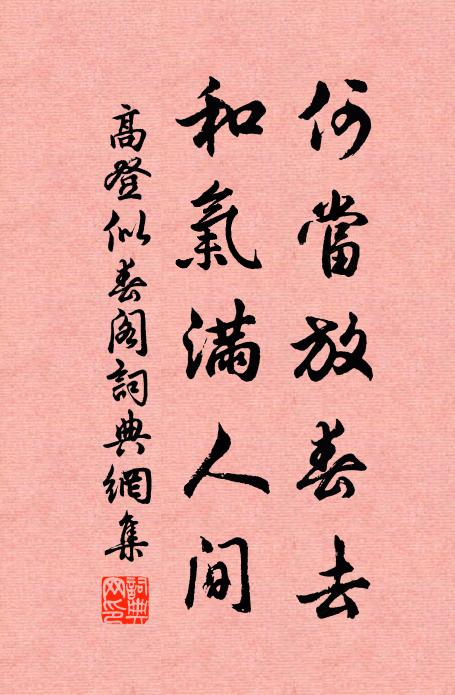 何當放春去
和氣滿人間
高登似春閣詞典網集
詞典網印